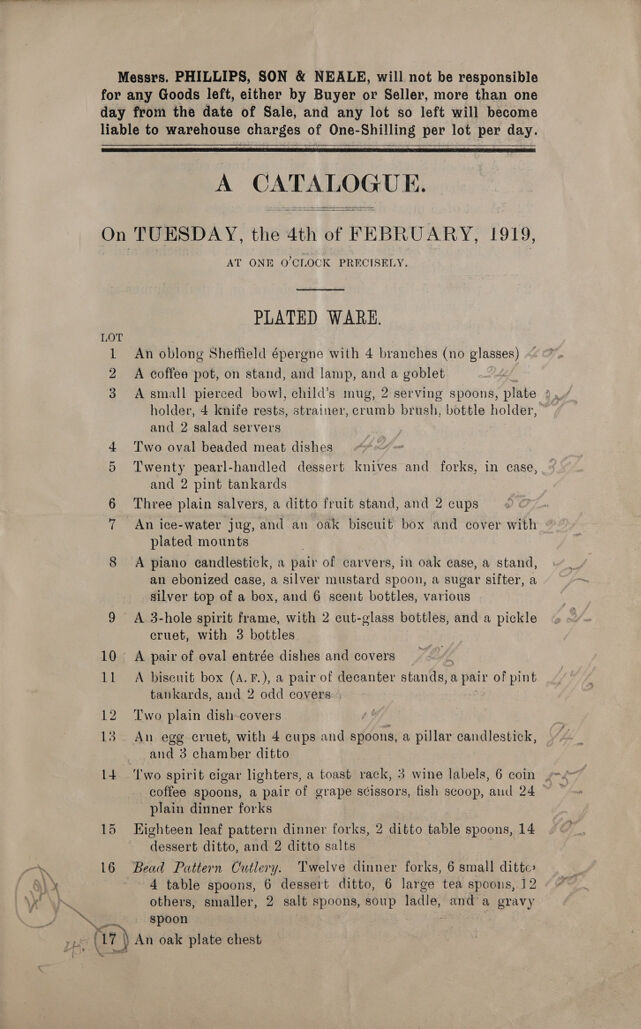 Messrs. PHILLIPS, SON & NEALE, will not be responsible
for any Goods left, either by Buyer or Seller, more than one
day from the date of Sale, and any lot so left will become
liable to warehouse charges of One-Shilling per lot per day.
A CATALOGUE.
On TUESDAY, the 4th of FEBRUARY, 1919,
AT ONE O'CLOCK PRECISELY.
PLATED WARE.
LOT
1 An oblong Sheffield épergne with 4 branches (no glasses)
2 A coffee pot, on stand, and lamp, and a goblet
3 A small pierced bowl, child's mug, 2 serving spoons, plate
holder, 4 knife rests, strainer, crumb brush, bottle holder,
and 2 salad servers
4 Two oval beaded meat dishes 42/-
5 Twenty pearl-handled dessert knives and forks, in case,
and 2 pint tankards
6 Three plain salvers, a ditto fruit stand, and 2 cups
7 An ice-water jug, and an oak biscuit box and cover with
plated mounts
8 A piano candlestick, a pair of carvers, in oak case, a stand,
an ebonized case, a silver mustard spoon, a sugar sifter, a
silver top of a box, and 6 scent bottles, various
9 A 3-hole spirit frame, with 2 cut-glass bottles, and a pickle
cruet, with 3 bottles
10 A pair of oval entrée dishes and covers
11 A biscuit box (A.F.), a pair of decanter stands, a pair of pint
tankards, and 2 odd covers
12 Two plain dish-covers
13 An egg cruet, with 4 cups and spoons, a pillar candlestick,
and 3 chamber ditto
14 Two spirit cigar lighters, a toast rack, 3 wine labels, 6 coin
coffee spoons, a pair of grape scissors, fish scoop, and 24
plain dinner forks
15 Eighteen leaf pattern dinner forks, 2 ditto table spoons, 14
dessert ditto, and 2 ditto salts
16 Bead Pattern Cutlery. Twelve dinner forks, 6 small ditto
4 table spoons, 6 dessert ditto, 6 large tea spoons, 12
others, smaller, 2 salt spoons, soup ladle, and a gravy
spoon
17 An oak plate chest